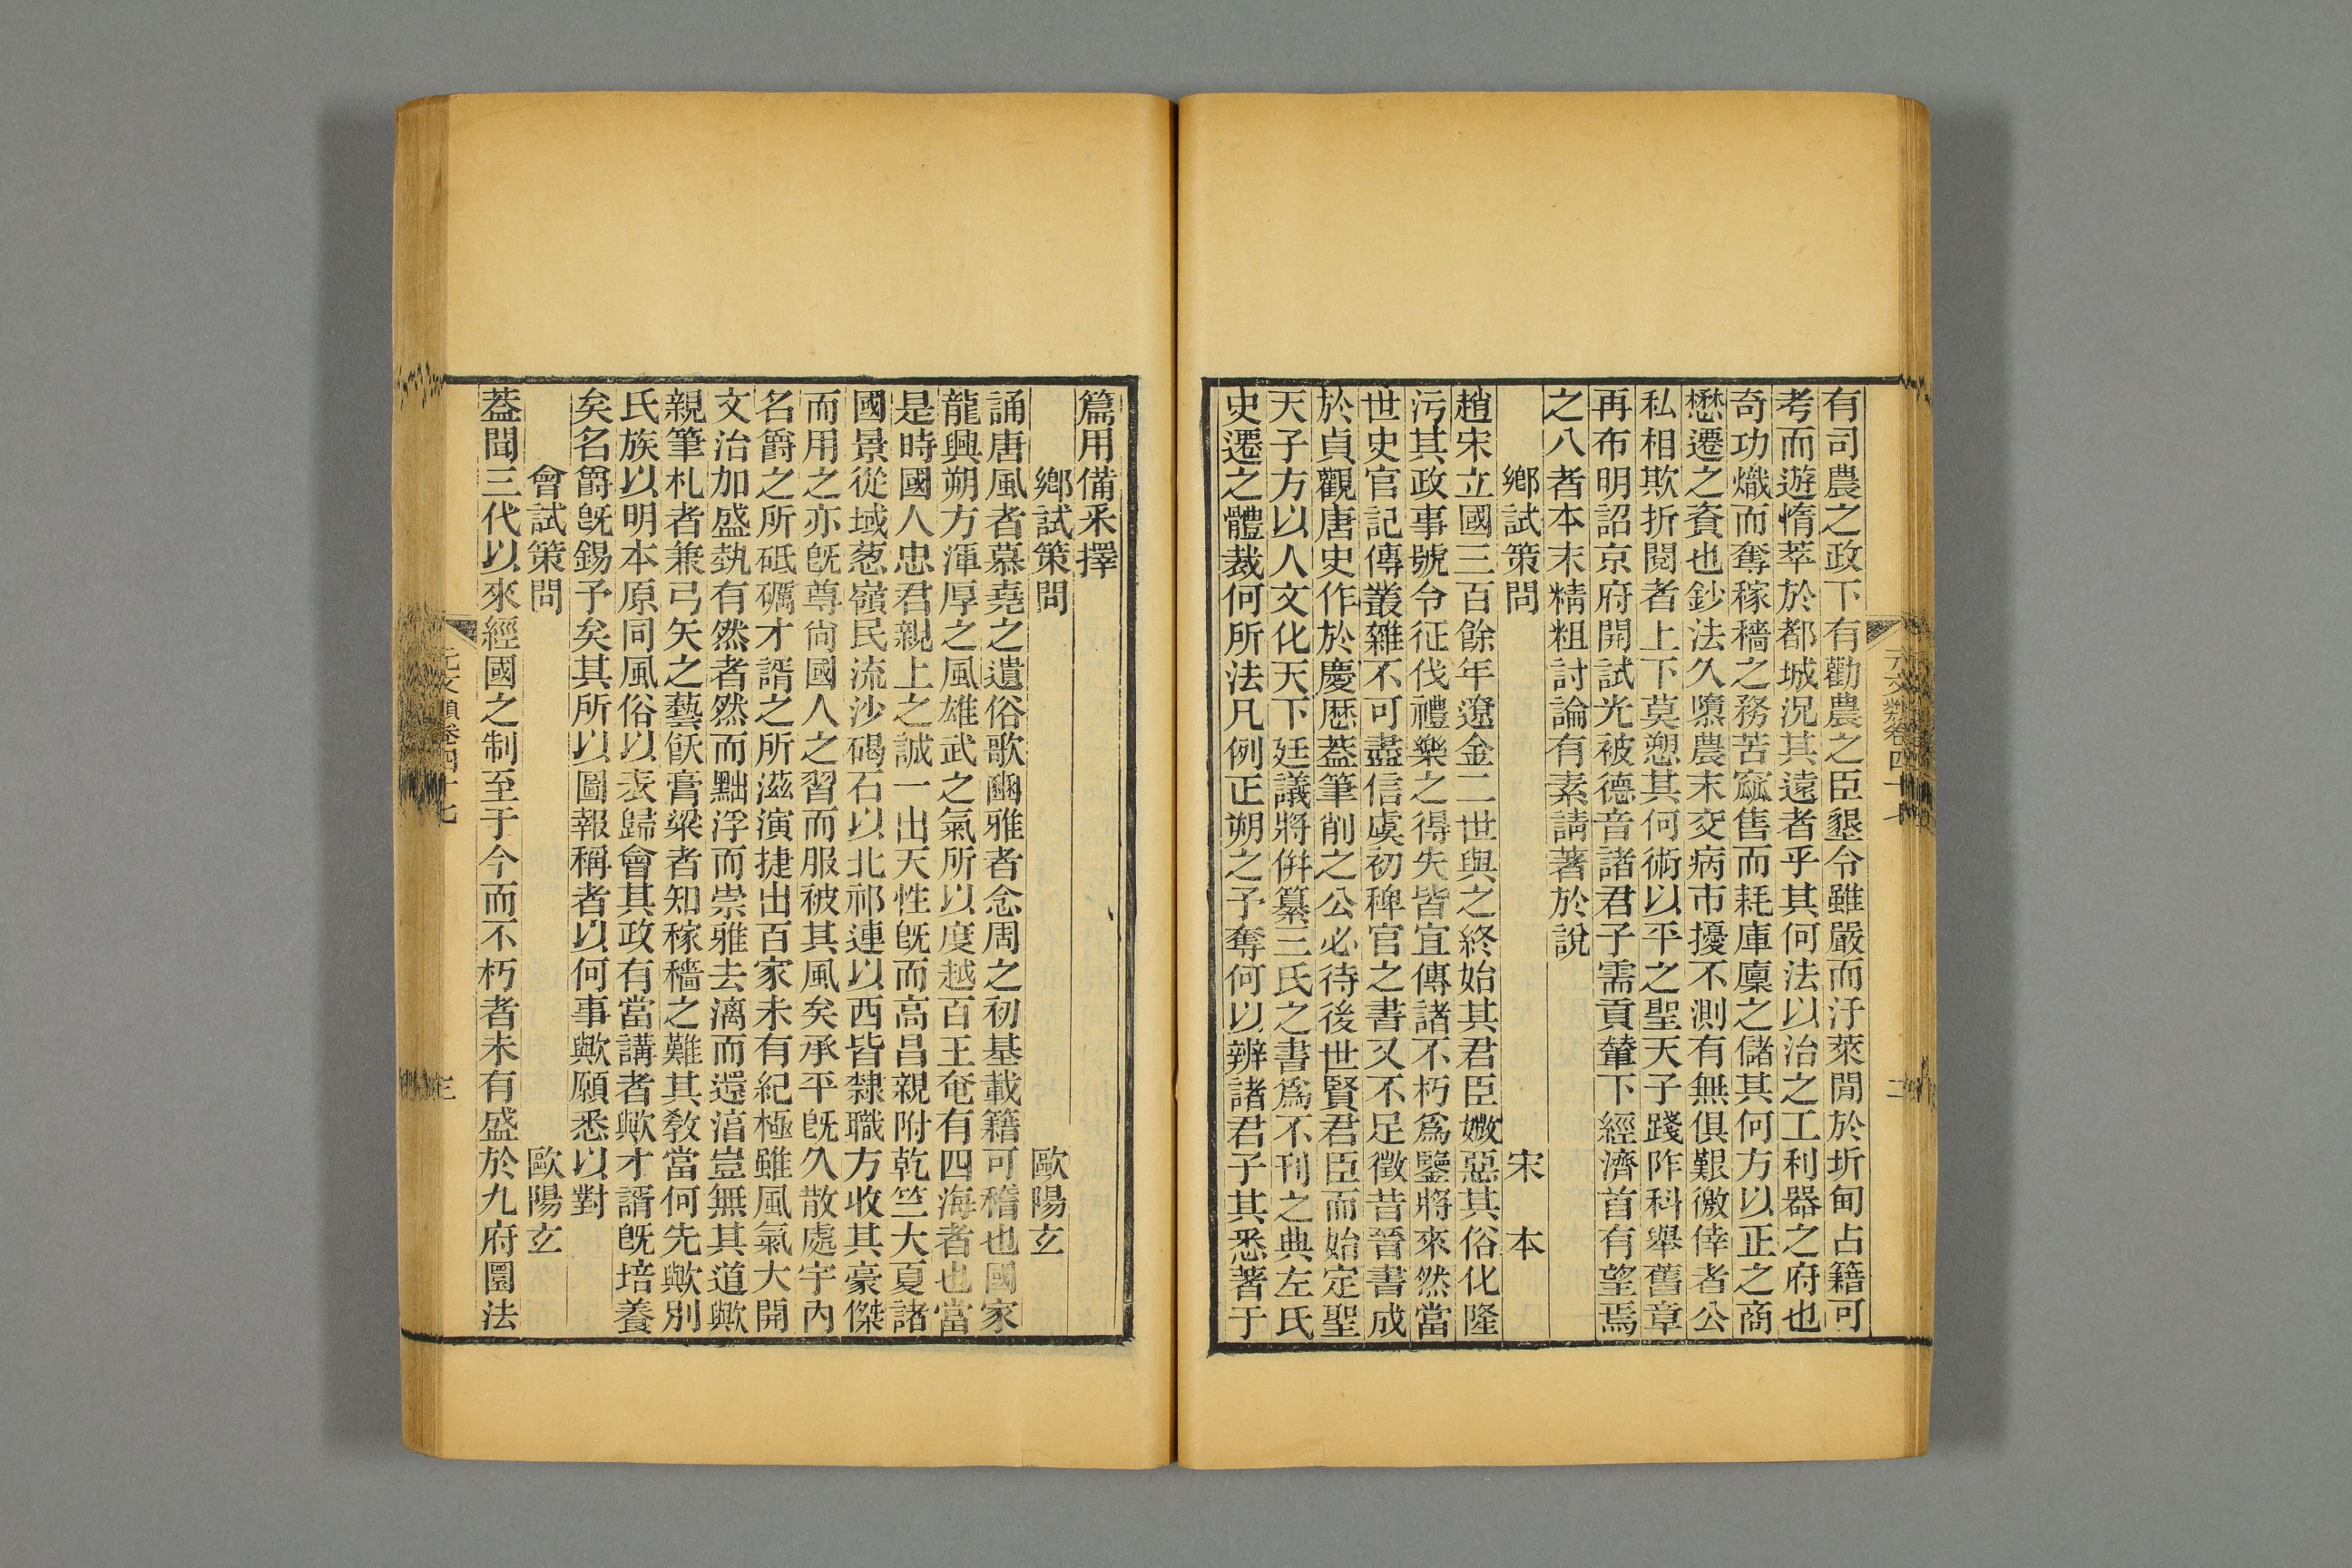 有司農之政下有勸農之臣墾令雖嚴而汙萊閒於圻甸占籍可
考而遊惰萃於都城況其遠者乎其何法以治之工利器之府也
奇功熾而奪稼穡之務苦窳售而耗庫廩之儲其何方以正之商
懋遷之資也鈔法久隳農末交病市擾不測有無俱艱徼倖者公
私相欺折閱者上下莫愬其何術以平之聖天子踐阼科舉舊章
再布明詔京府開試光被德音諸君子需貢輦下經濟首有望焉
之八者本末精粗討論有素請著於說
鄉試策問 宋本
趙宋立國三百餘年遼金二世與之終始其君臣媺惡其俗化隆
污其政事號令征伐禮樂之得失皆宜傳諸不朽爲鑒將來然當
世史官記傳叢雜不可盡信虞初稗官之書又不足徵昔晉書成
於貞觀唐史作於慶厯葢筆削之公必待後世賢君臣而始定聖
天子方以人文化天下廷議將倂纂三氏之書爲不刊之典左氏
史遷之體裁何所法凡例正朔之予奪何以辨諸君子其悉著于
篇用備采擇
鄉試策問 歐陽玄
誦唐風者慕堯之遺俗歌豳雅者念周之初基載籍可稽也國家
龍興朔方渾厚之風雄武之氣所以度越百王奄有四海者也當
是時國人忠君親上之誠一出天性旣而高昌親附乾竺大夏諸
國景從域葱嶺民流沙碣石以北祁連以西皆隸職方收其豪傑
而用之亦旣尊尙國人之習而服被其風矣承平旣久散處宇內
名爵之所砥礪才諝之所滋演捷出百家未有紀極雖風氣大開
文治加盛埶有然者然而黜浮而崇雅去漓而還湻豈無其道歟
親筆札者兼弓矢之藝飫膏粱者知稼穡之難其敎當何先歟別
氏族以明本原同風俗以表歸會其政有當講者歟才諝旣培養
矣名爵旣錫予矣其所以圖報稱者以何事歟願悉以對
會試策問 歐陽玄
葢聞三代以來經國之制至于今而不朽者未有盛於九府圜法